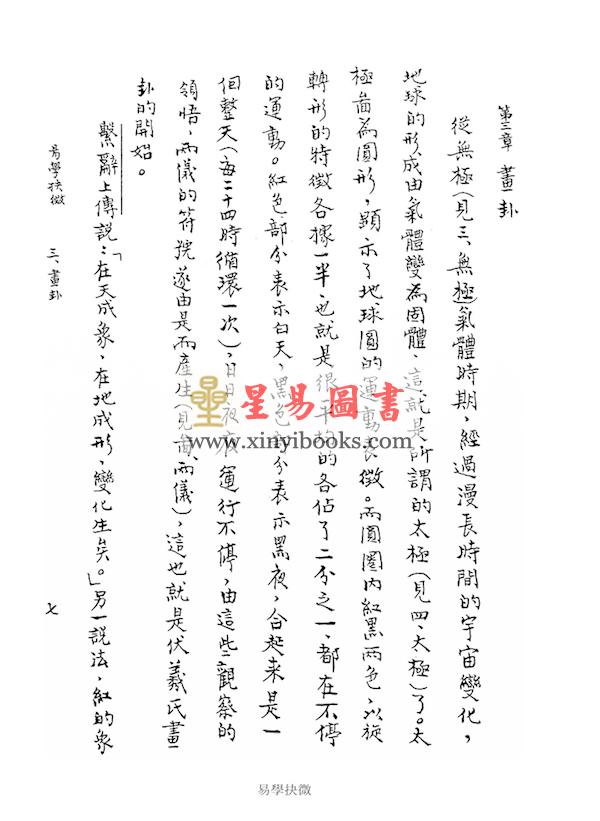 第三章 畫卦
從無極(見三、無極)氣體時期，經過漫長時間的宇宙變化，
地球的形成由氣體變為固體，這就是所謂的太極(見四、太極)了。太
極畧為圓形，顯示了地球圓的運動表徵。而圓圈內紅黑兩色，以旋
轉形的特徵各據一半，也就是很平均的各佔了二分之一、都在不停
的運動。紅色部分表示白天，黑色部分表示黑夜，合起來是一
個整天(每二十四時循環一次)，日日夜夜運行不停，由這些觀察的
領悟，兩儀的符號遂由是而產生(見畧、兩儀)，這也就是伏羲氏畫
卦的開始。
繫辭上傳說：「在天成象，在地成形，變化生矣。」另一說法，紅的象
易學抉微 三、畫卦 七
星易圖書
www.xinyibooks.com
易學抉微